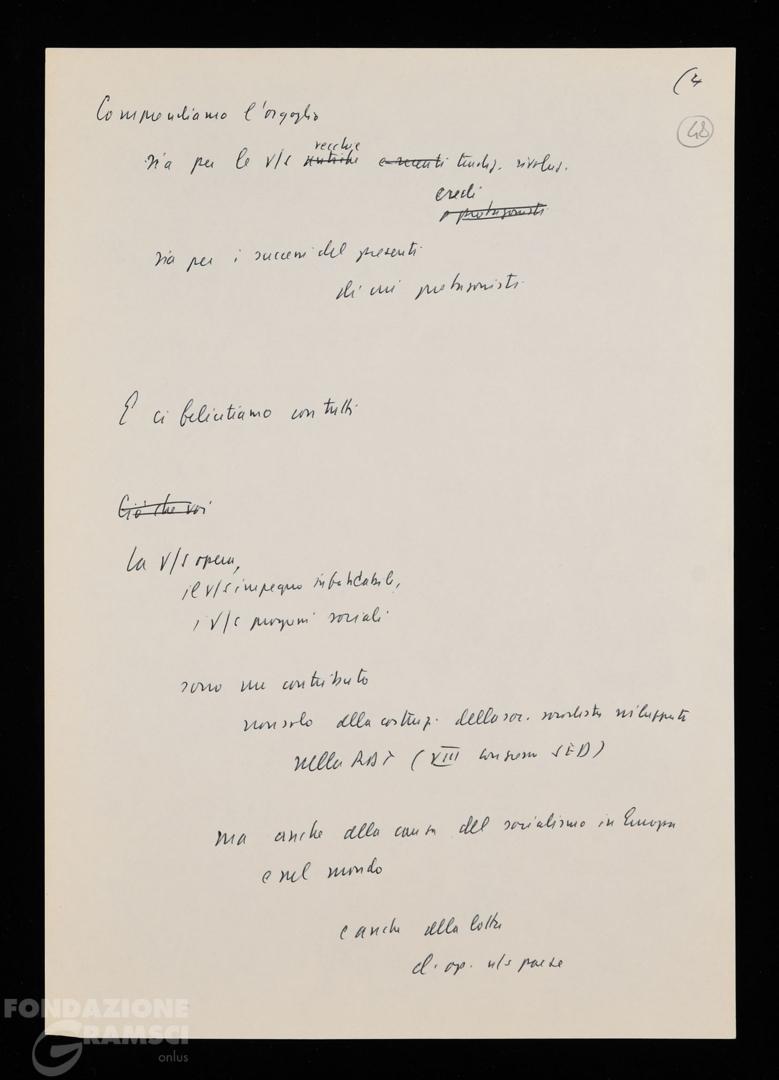 (4
48
Comprendiamo l'orgoglio
vecchie
sia per le v/s antiche e recenti tradiz. rivoluz.
eredi
e protagonisti
sia per i successi del presente
di cui protagonisti
E ci felicitiamo con tutti
Ciò che voi
La v/s opera,
il v/s impegno infaticabile,
i v/s progressi sociali
sono un contributo
non solo alla costruz. della soc. socialista sviluppata
nella RDT (VIII congresso SED)
ma anche alla causa del socialismo in Europa
e nel mondo
e anche alla lotta
d. op. n/s paese
FONDAZIONE
GRAMSCI
onlus